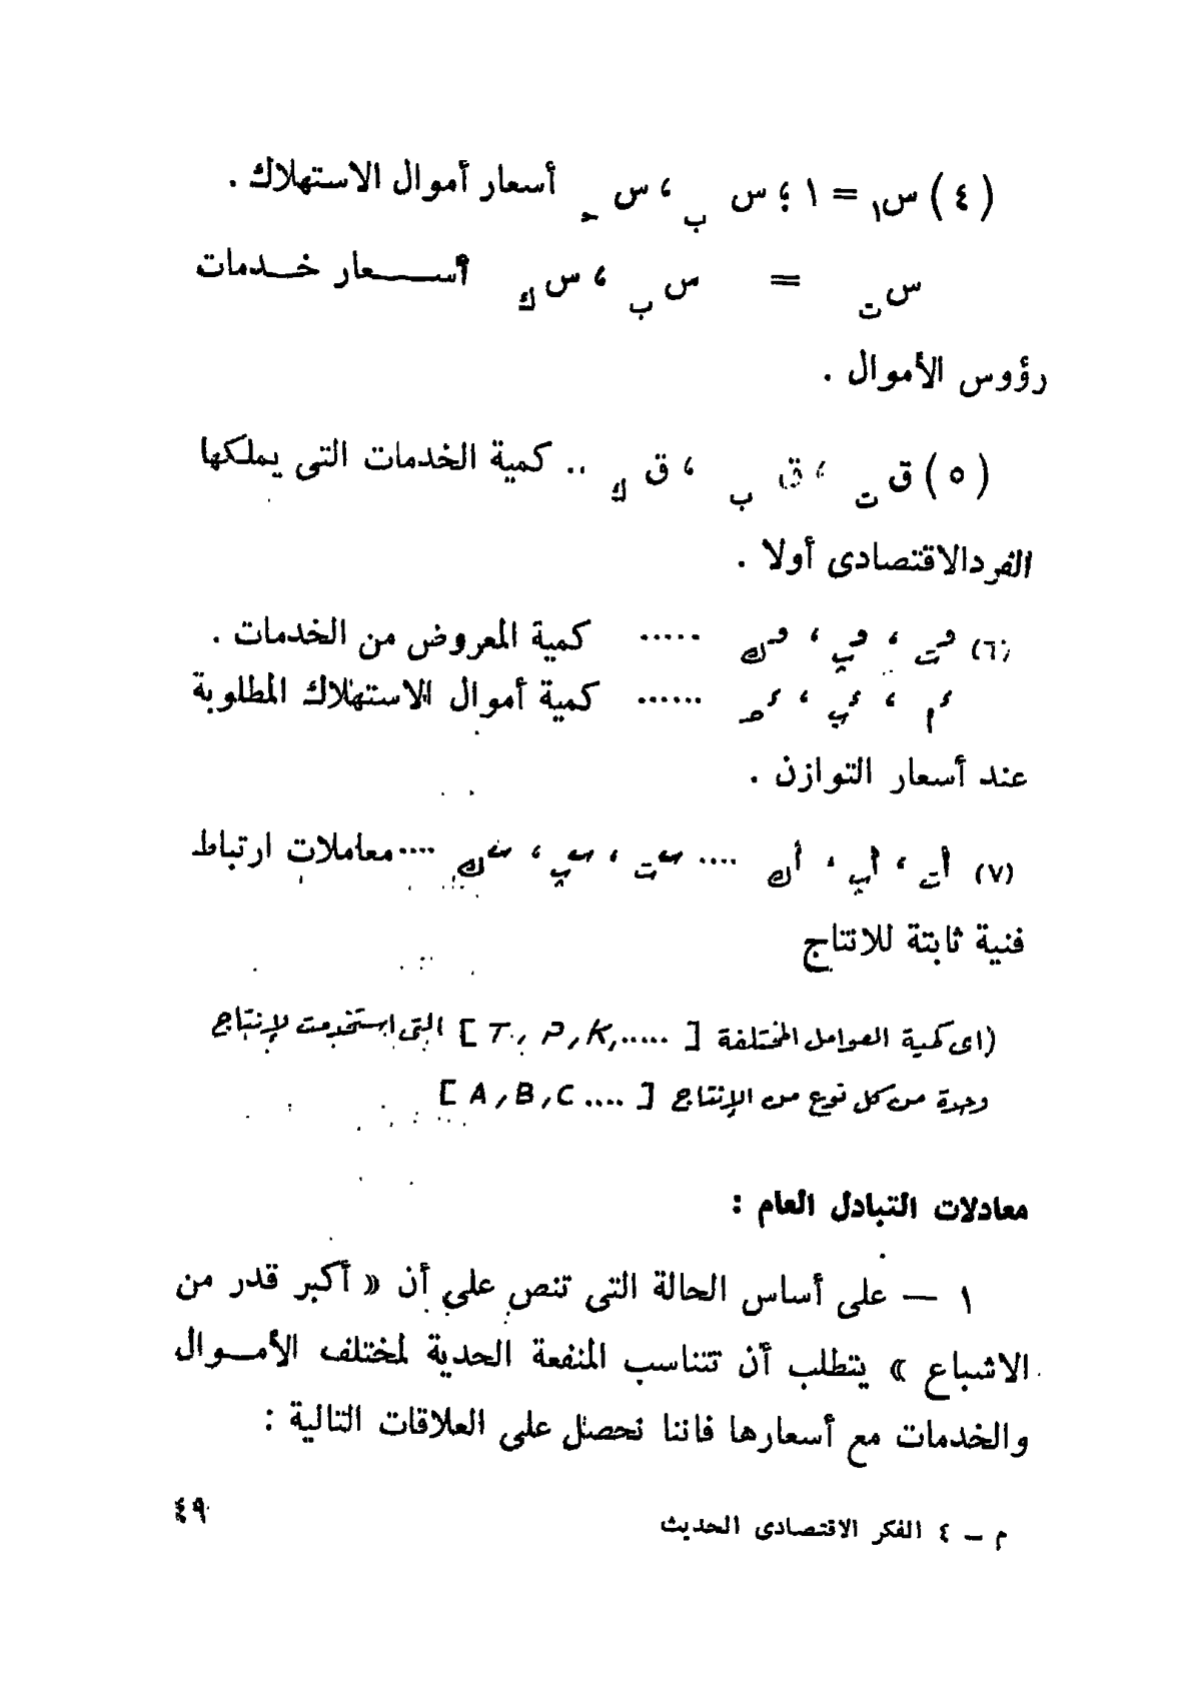 (٤) س١ = ١ ؛ س ب ، س ح أسعار أموال الاستهلاك .
س ت = س ب ، س ك أســـعار خـدمات
رؤوس الأموال .
(٥) ق ت ، ق ب ، ق ك .. كمية الخدمات التى يملكها
الفرد الاقتصادى أولا .
(٦) و ت ، و ب ، و ك ..... كمية المعروض من الخدمات .
...... كمية أموال الاستهلاك المطلوبة
عند أسعار التوازن .
(٧) أت ، أب ، أك .... .... معاملات ارتباط
فنية ثابتة للانتاج
(اى كمية العوامل المختلفة [ T, P, K, ..... ] التى استخدمت لإنتاج
وحدة من كل نوع من الإنتاج [ A, B, C .... ]
معادلات التبادل العام :
١ — على أساس الحالة التى تنص على أن « أكبر قدر من
الاشباع » يتطلب أن تتناسب المنفعة الحدية لمختلف الأمـوال
والخدمات مع أسعارها فاننا نحصل على العلاقات التالية :
م — ٤ الفكر الاقتصادى الحديث
٤٩